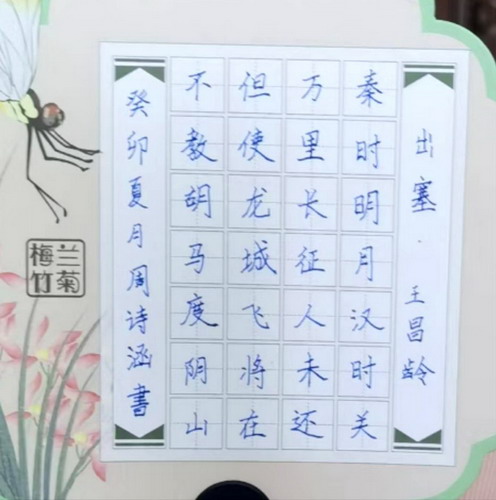 出塞·王昌龄
秦时明月汉时关
万里长征人未还
但使龙城飞将在
不教胡马度阴山
癸卯夏月周诗涵書
梅兰
竹菊